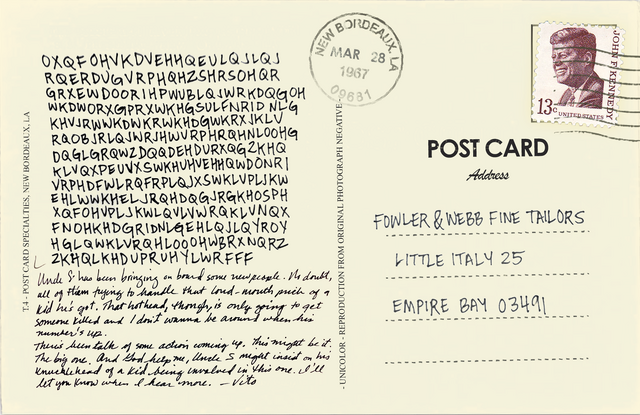 OXQFOHVKDVEHHQEULQJLQJ
RQERDUGVRPHQHZSHRSOHQR
GRXEWDOORIHPWUBLQJWRKDQGOH
WKDWORXGPRXWKHGSULFNRIDNLG
KHVJRWWKDWKRWKHDGWKRXJKLV
RQOBJRLQJWRJHWVRPHRQHNLOOHG
DQGLGRQWZDQQDEHDURXQGZKHQ
KLVQXPEUVXSWKHUHVEHHQWDONRI
VRPHDFWLRQFRPLQJXSWKLVPLJKW
EHLWWKHELJRQHDQGJRGKHOSPH
XQFOHVPLJKWLQVLVWRQKLVNQX
FNOHKHDGRIDNLGEHLQJLQYROY
HGLQWKLVRQHLOOOHWBRXNQRZ
ZKHQLKHDUPRUHYLWRFFF
Uncle S has been bringing on board some new people. No doubt,
all of them trying to handle that loud-mouth, prick of a
kid he's got. That hothead, though, is only going to get
someone killed and I don't wanna be around when his
number's up.
There's been talk of some action coming up. This might be it.
The big one. And God help me, Uncle S might insist on his
knucklehead of a kid being involved in this one. I'll
let you know when I hear more. - Vito
T.4 - POST CARD SPECIALTIES, NEW BORDEAUX, LA
- UNICOLOR - REPRODUCTION FROM ORIGINAL PHOTOGRAPH NEGATIVE -
NEW BORDEAUX, LA
MAR 28
1967
09681
JOHN F KENNEDY
13c
UNITED STATES
POST CARD
Address
FOWLER & WEBB FINE TAILORS
LITTLE ITALY 25
EMPIRE BAY 03491